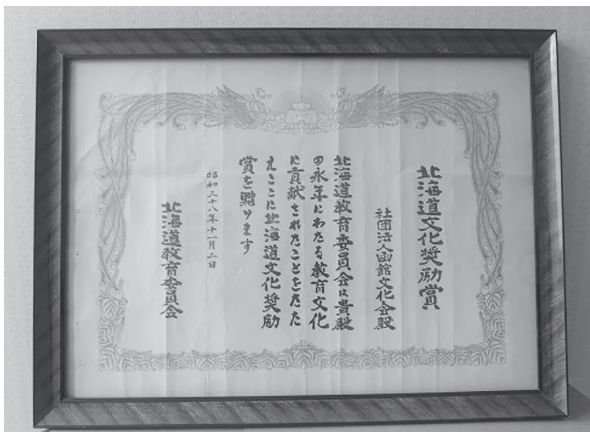 北海道文化奨励賞
社団法人函館文化会殿
北海道教育委員会は貴殿
の永年にわたる教育文化
に貢献されたことをたた
えここに北海道文化奨励
賞を贈ります
昭和三十八年十一月三日
北海道教育委員会